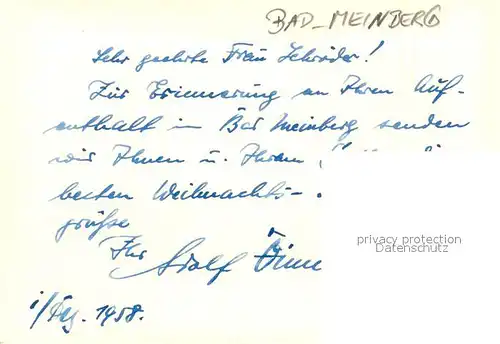 BAD-MEINBERG
Sehr geehrte Frau Schröder!
Zur Erinnerung an Ihren Auf-
enthalt in Bad Meinberg senden
wir Ihnen u. Ihrem
besten Weihnachts-
grüße
Ihr Adolf
privacy protection
Datenschutz
i/Dez. 1958.